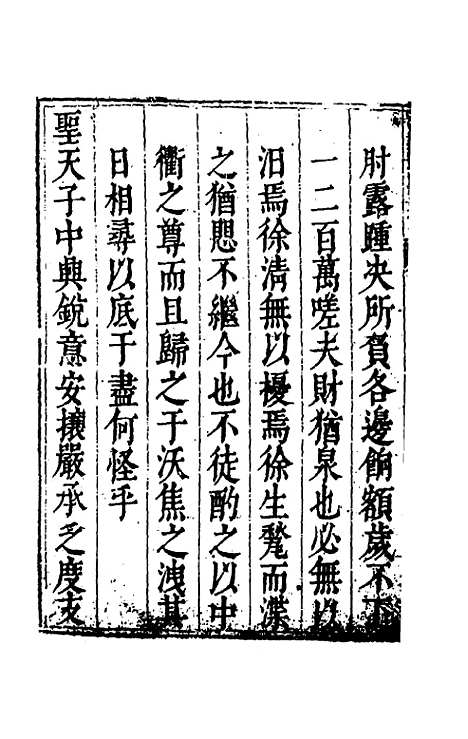 肘露踵决所負各邊餉額歲不下
一二百萬嗟夫財猶泉也必無以
汨焉徐清無以擾焉徐生甃而渫
之猶恐不繼今也不徒酌之以中
衢之尊而且歸之于沃焦之洩其
日相尋以底于盡何怪乎
聖天子中興銳意安攘嚴承乏度支